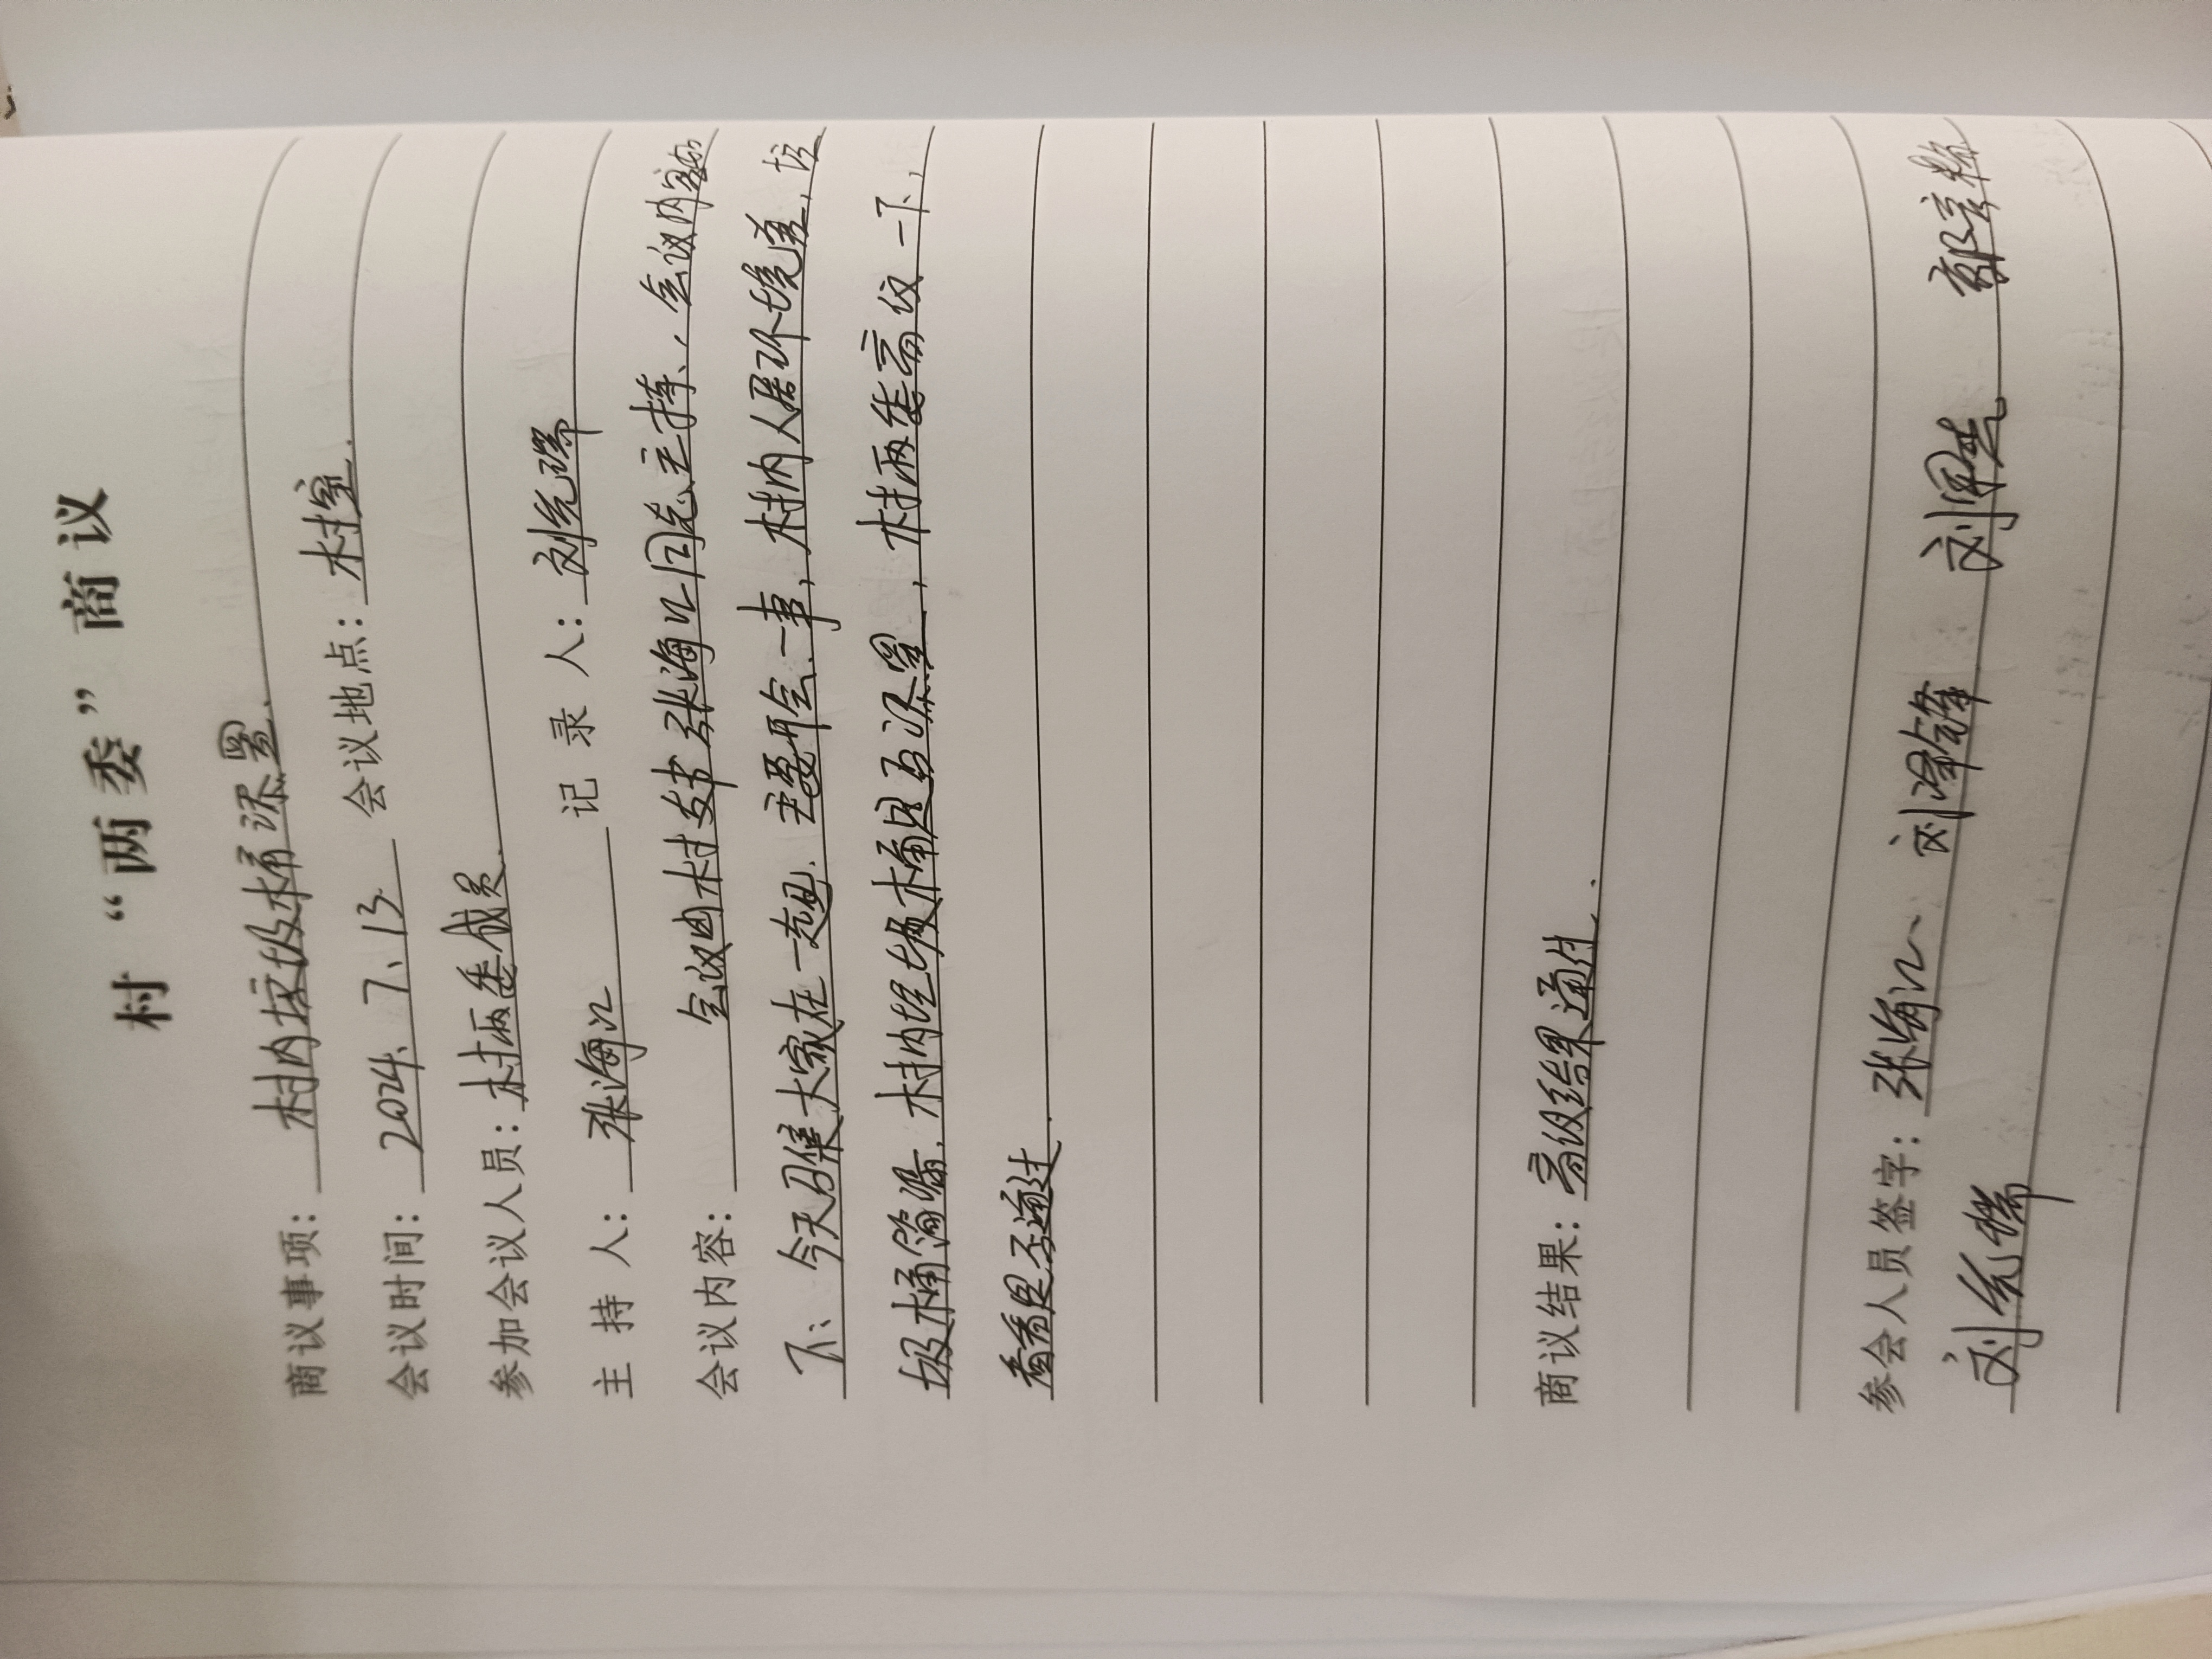 村“两委”商议
商议事项：村内垃圾桶添置.
会议时间：2024.7.13. 会议地点：村室.
参加会议人员：村两委成员.
主 持 人：张海江 记 录 人：刘先瑞
会议内容：会议由村支书张海江同志主持、会议内容如
下：今天召集大家在一起.主要开会一事，村内人居环境差，垃
圾桶简陋.村内垃圾桶是否添置，村两委商议一下，
看看是否通过.
商议结果：商议结果通过.
参会人员签字：张海江、刘峰 刘国志
刘先瑞